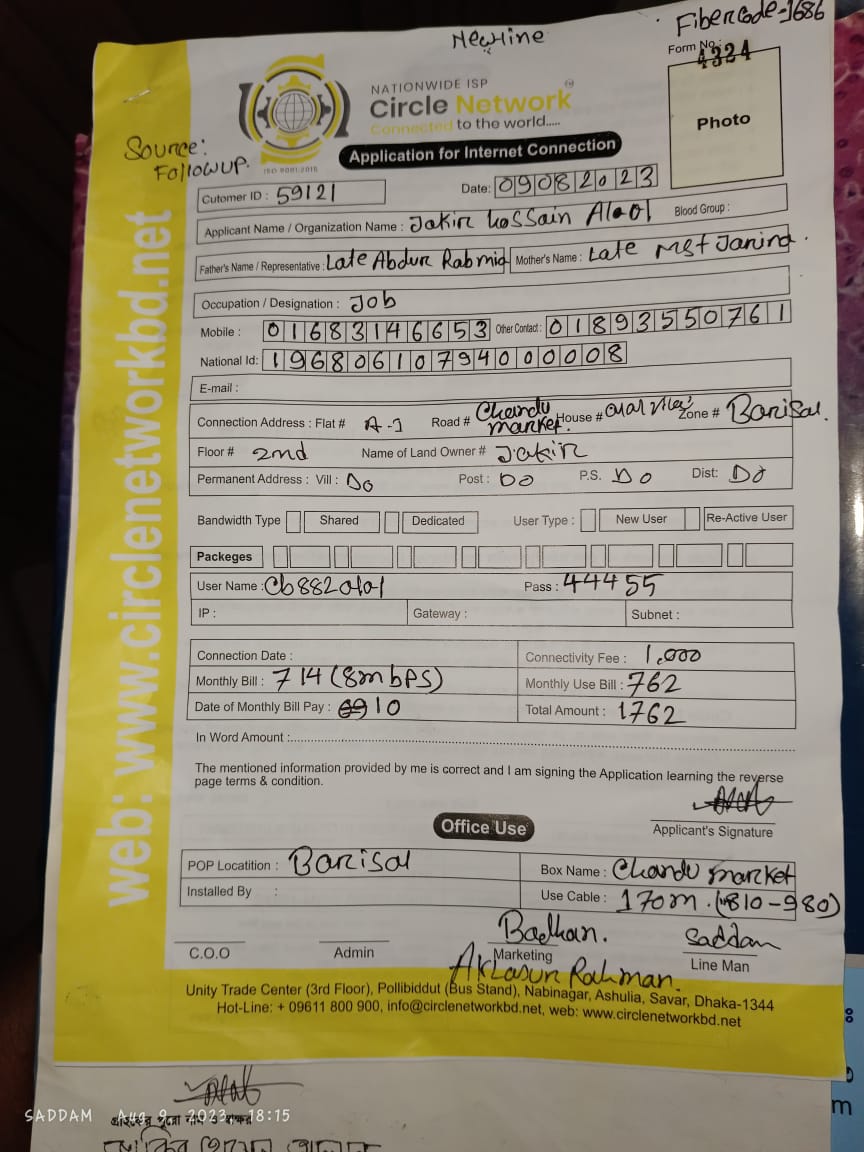 Newline
Fiber Code-1686
Form No.: 4324
Photo
NATIONWIDE ISP
Circle Network
Connected to the world.....
ISO 9001:2015
Source:
Followup.
Application for Internet Connection
Cutomer ID : 59121
Date: 09082023
Applicant Name / Organization Name : Jakir Hossain Alal Blood Group :
Father's Name / Representative : Late Abdur Rab mia Mother's Name : Late Mst
Occupation / Designation : Job
Mobile : 01683146653 Other Contact : 01893550761
National Id: 19680610794000008
E-mail :
Connection Address : Flat # A-1 Road # Chandu market. House # Zone # Barisal.
Floor # 2nd Name of Land Owner # Jakir
Permanent Address : Vill : Do Post : Do P.S. Do Dist: Do
Bandwidth Type Shared Dedicated User Type : New User Re-Active User
Packeges
User Name : Pass : 44455
IP : Gateway : Subnet :
Connection Date : Connectivity Fee : 1,000
Monthly Bill : 714 (8mbps) Monthly Use Bill : 762
Date of Monthly Bill Pay : 10 Total Amount : 1762
In Word Amount :
The mentioned information provided by me is correct and I am signing the Application learning the reverse
page terms & condition.
Applicant's Signature
Office Use
POP Locatition : Barisal Box Name : Chandu market
Installed By : Use Cable : 170m. (810-980)
Badhan. Saddam
C.O.O Admin Marketing Line Man
Rahman.
Unity Trade Center (3rd Floor), Pollibiddut (Bus Stand), Nabinagar, Ashulia, Savar, Dhaka-1344
Hot-Line: + 09611 800 900, info@circlenetworkbd.net, web: www.circlenetworkbd.net
web: www.circlenetworkbd.net
SADDAM Aug 9, 2023, 18:15
m